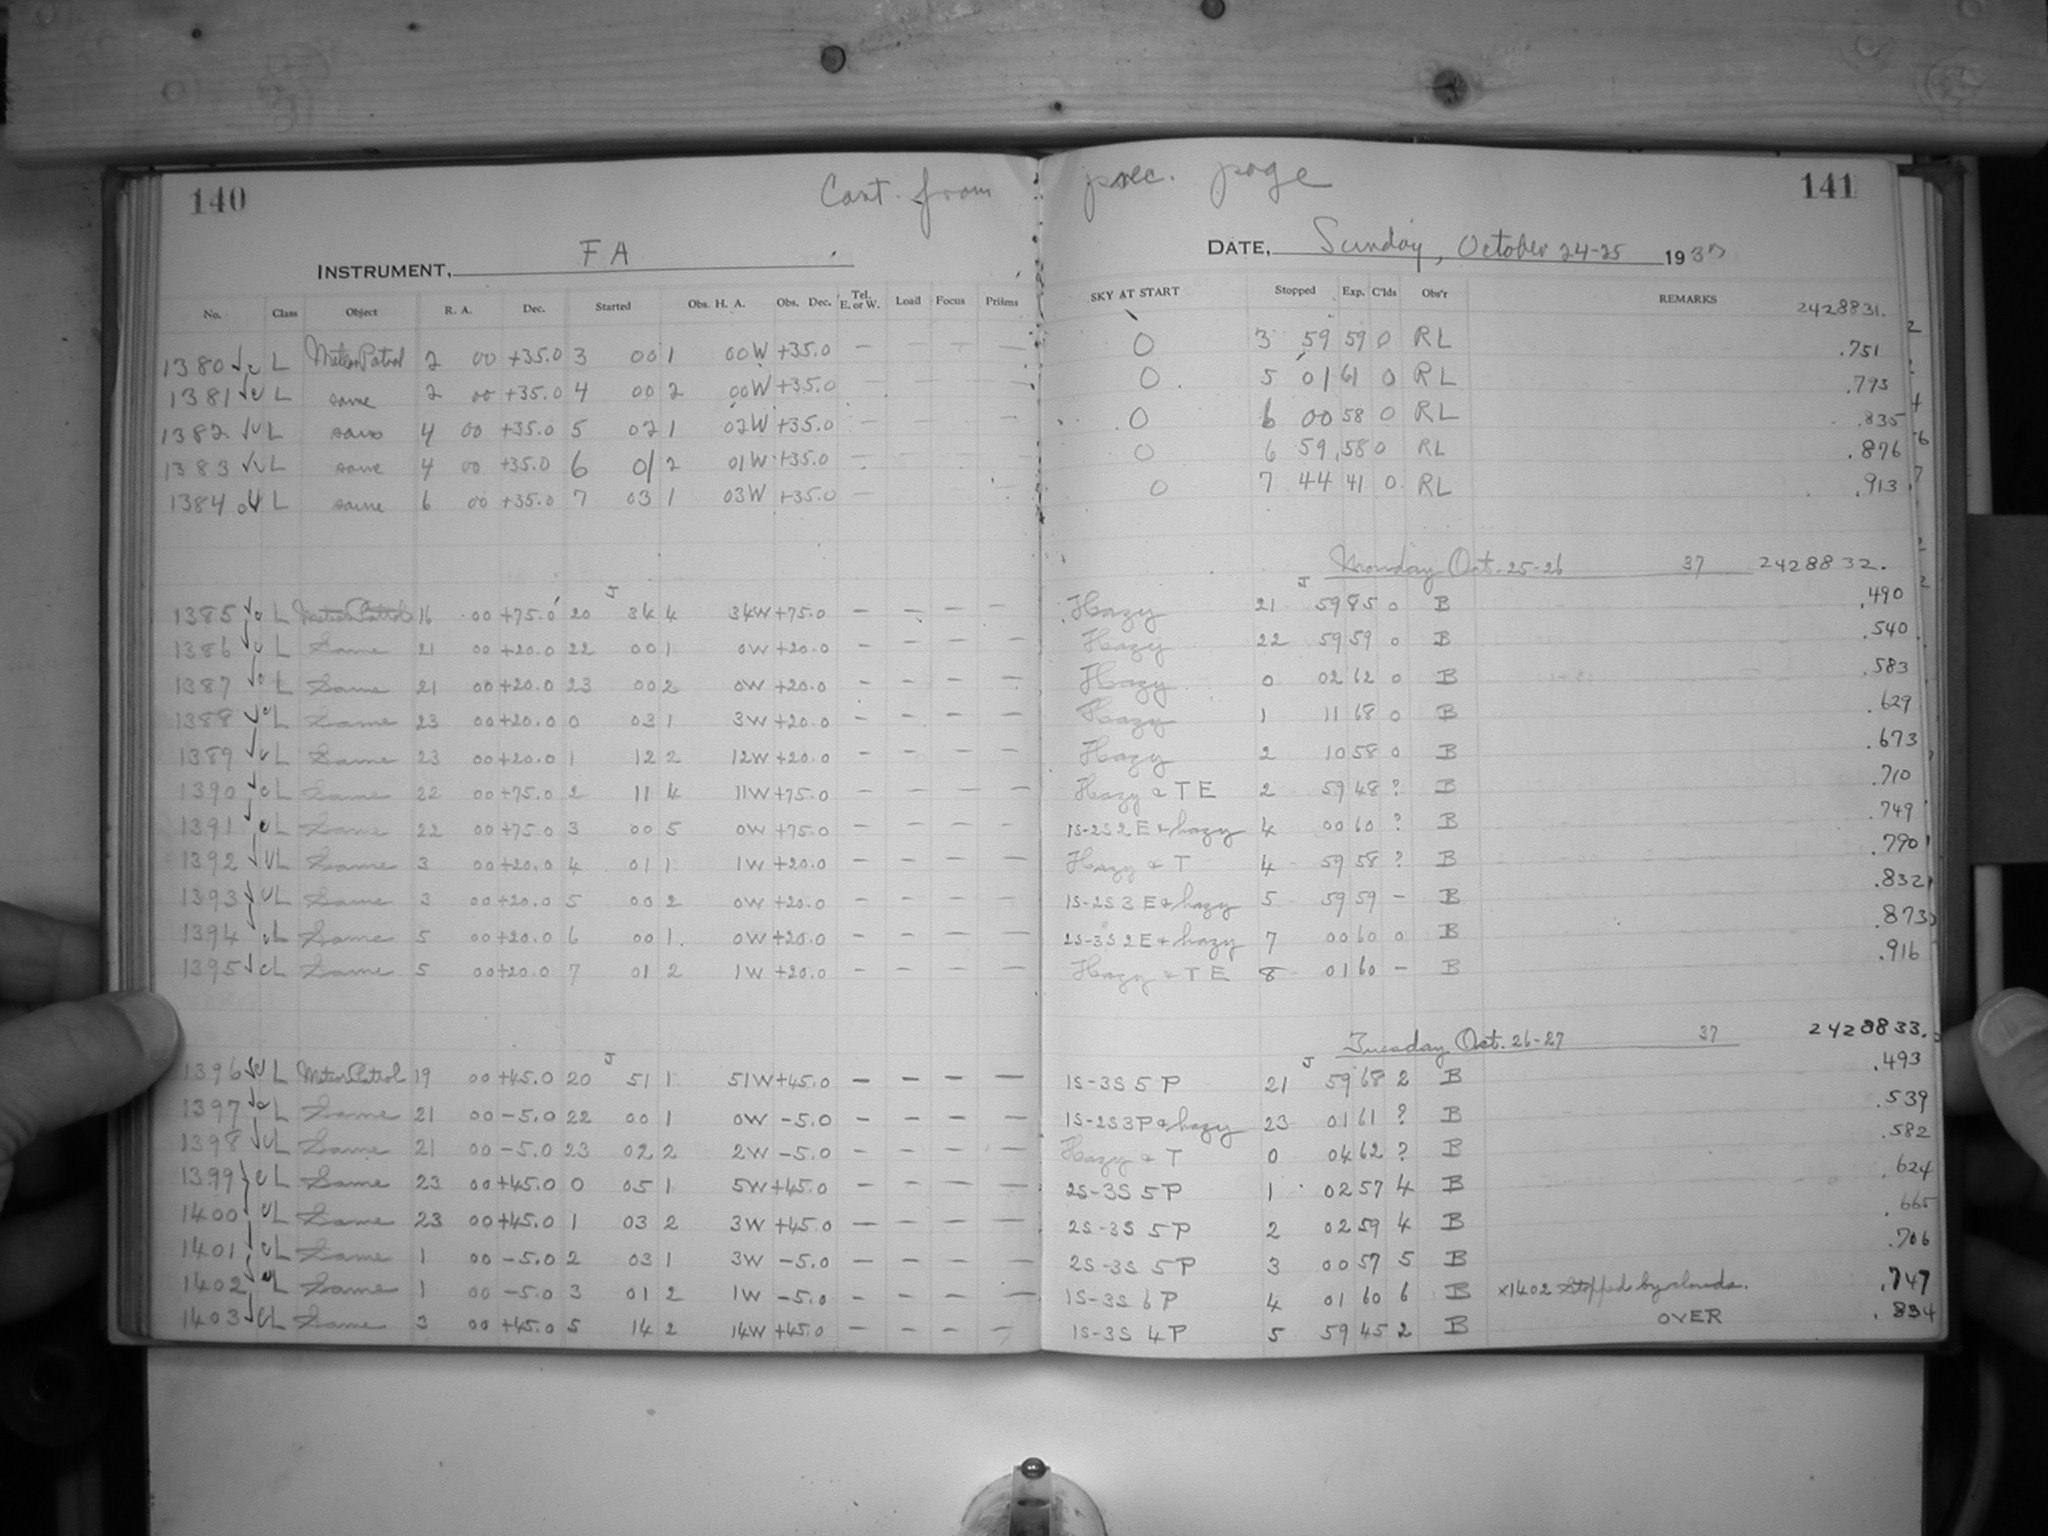 140 Cont. from prec. page 141
INSTRUMENT, F A DATE, Sunday, October 24-25 1937
No. Class Object R. A. Dec. Started Obs. H. A. Obs. Dec. Tel. E. or W. Load Focus Prisms SKY AT START Stopped Exp. C'lds Obs'r REMARKS 2428831.
1380 L Meteor Patrol 2 00 +35.0 3 00 1 00W +35.0 — — — — O 3 59 59 0 RL .751
1381 L same 2 00 +35.0 4 00 2 00W +35.0 — — — — O 5 01 61 0 RL .793
1382 L same 4 00 +35.0 5 02 1 02W +35.0 — — — — O 6 00 58 0 RL .835
1383 L same 4 00 +35.0 6 01 2 01W +35.0 — — — — O 6 59 58 0 RL .876
1384 L same 6 00 +35.0 7 03 1 03W +35.0 — O 7 44 41 0 RL .913
Monday Oct. 25-26 37 2428832.
1385 L Meteor Patrol 16 00 +75.0 20 J 34 4 34W +75.0 — — — — Hazy 21 J 59 85 0 B .490
1386 L Same 21 00 +20.0 22 00 1 0W +20.0 — — — — Hazy 22 59 59 0 B .540
1387 L Same 21 00 +20.0 23 00 2 0W +20.0 — — — — Hazy 0 02 62 0 B .583
1388 L Same 23 00 +20.0 0 03 1 3W +20.0 — — — — Hazy 1 11 68 0 B .629
1389 L Same 23 00 +20.0 1 12 2 12W +20.0 — — — — Hazy 2 10 58 0 B .673
1390 L Same 22 00 +75.0 2 11 4 11W +75.0 — — — — Hazy & T E 2 59 48 ? B .710
1391 L Same 22 00 +75.0 3 00 5 0W +75.0 — — — — 1S-2S 2 E & hazy 4 00 60 ? B .749
1392 L Same 3 00 +20.0 4 01 1 1W +20.0 — — — — Hazy & T 4 59 58 ? B .790
1393 L Same 3 00 +20.0 5 00 2 0W +20.0 — — — — 1S-2S 3 E & hazy 5 59 59 — B .832
1394 L Same 5 00 +20.0 6 00 1 0W +20.0 — — — — 2S-3S 2 E & hazy 7 00 60 0 B .873
1395 L Same 5 00 +20.0 7 01 2 1W +20.0 — — — — Hazy & T E 8 01 60 — B .916
Tuesday Oct. 26-27 37 2428833.
1396 L Meteor Patrol 19 00 +45.0 20 J 51 1 51W +45.0 — — — — 1S-3S 5 P 21 J 59 68 2 B .493
1397 L Same 21 00 -5.0 22 00 1 0W -5.0 — — — — 1S-2S 3P & hazy 23 01 61 ? B .539
1398 L Same 21 00 -5.0 23 02 2 2W -5.0 — — — — Hazy & T 0 04 62 ? B .582
1399 L Same 23 00 +45.0 0 05 1 5W +45.0 — — — — 2S-3S 5 P 1 02 57 4 B .624
1400 L Same 23 00 +45.0 1 03 2 3W +45.0 — — — — 2S-3S 5 P 2 02 59 4 B .665
1401 L Same 1 00 -5.0 2 03 1 3W -5.0 — — — — 2S-3S 5 P 3 00 57 5 B .706
1402 L Same 1 00 -5.0 3 01 2 1W -5.0 — — — — 1S-3S 6 P 4 01 60 6 B x1402 Stopped by clouds. .747
1403 L Same 3 00 +45.0 5 14 2 14W +45.0 — — — — 1S-3S 4 P 5 59 45 2 B OVER .834